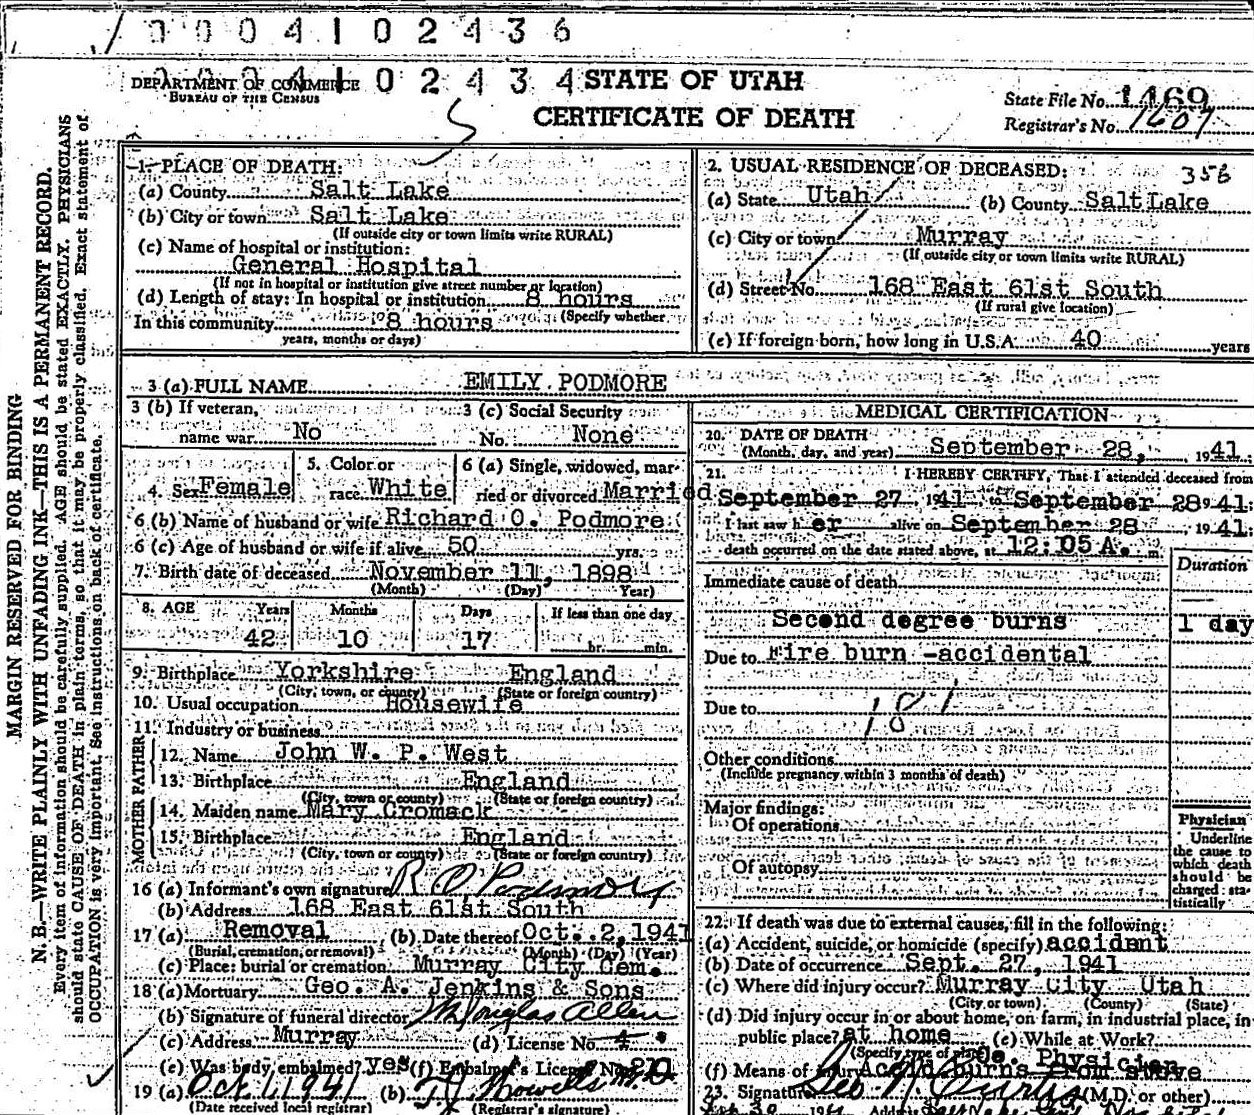 0004102436
0004102434
DEPARTMENT OF COMMERCE
BUREAU OF THE CENSUS
STATE OF UTAH
CERTIFICATE OF DEATH
State File No. 1469
Registrar's No. 1607
MARGIN RESERVED FOR BINDING
N. B.—WRITE PLAINLY WITH UNFADING INK—THIS IS A PERMANENT RECORD.
Every item of information should be carefully supplied. AGE should be stated EXACTLY. PHYSICIANS
should state CAUSE OF DEATH in plain terms, so that it may be properly classified. Exact statement of
OCCUPATION is very important. See instructions on back of certificate.
1. PLACE OF DEATH:
(a) County Salt Lake
(b) City or town Salt Lake
(If outside city or town limits write RURAL)
(c) Name of hospital or institution:
General Hospital
(If not in hospital or institution give street number or location)
(d) Length of stay: In hospital or institution 8 hours
(Specify whether
In this community 8 hours
years, months or days)
2. USUAL RESIDENCE OF DECEASED:
356
(a) State Utah (b) County Salt Lake
(c) City or town Murray
(If outside city or town limits write RURAL)
(d) Street No. 168 East 61st South
(If rural give location)
(e) If foreign born, how long in U.S.A. 40 years
3 (a) FULL NAME EMILY PODMORE
3 (b) If veteran,
name war No
3 (c) Social Security
No. None
4. Sex Female
5. Color or
race White
6 (a) Single, widowed, mar-
ried or divorced Married
6 (b) Name of husband or wife Richard O. Podmore
6 (c) Age of husband or wife if alive 50 yrs.
7. Birth date of deceased November 11, 1898
(Month) (Day) (Year)
8. AGE Years Months Days If less than one day
42 10 17 hr. min.
9. Birthplace Yorkshire England
(City, town, or county) (State or foreign country)
10. Usual occupation Housewife
11. Industry or business
FATHER
12. Name John W. P. West
13. Birthplace England
(City, town or county) (State or foreign country)
MOTHER
14. Maiden name Mary Cromack
15. Birthplace England
(City, town or county) (State or foreign country)
16 (a) Informant's own signature R O Podmore
(b) Address 168 East 61st South
17 (a) Removal (b) Date thereof Oct. 2, 1941
(Burial, cremation, or removal) (Month) (Day) (Year)
(c) Place: burial or cremation Murray City Cem.
18 (a) Mortuary Geo. A. Jenkins & Sons
(b) Signature of funeral director M Douglas Allen
(c) Address Murray (d) License No. 4
(e) Was body embalmed? yes (f) Embalmer's License No. 210
19 (a) Oct 1 1941 (b) T J Howells M.D
(Date received local registrar) (Registrar's signature)
MEDICAL CERTIFICATION
20. DATE OF DEATH
(Month, day, and year) September 28, 1941
21. I HEREBY CERTIFY, That I attended deceased from
September 27, 1941 to September 28 1941
I last saw her alive on September 28 1941
death occurred on the date stated above, at 12:05 A. m.
Duration
Immediate cause of death
Second degree burns 1 day
Due to Fire burn -accidental
Due to 181
Other conditions
(Include pregnancy within 3 months of death)
Major findings:
Of operations
Of autopsy
Physician
Underline
the cause to
which death
should be
charged sta-
tistically
22. If death was due to external causes, fill in the following:
(a) Accident, suicide, or homicide (specify) accident
(b) Date of occurrence Sept. 27, 1941
(c) Where did injury occur? Murray City Utah
(City or town) (County) (State)
(d) Did injury occur in or about home, on farm, in industrial place, in
public place? at home (e) While at Work?
(Specify type of place)
Co. Physician
(f) Means of injury burns from stove
23. Signature Geo N Curtis (M.D. or other)